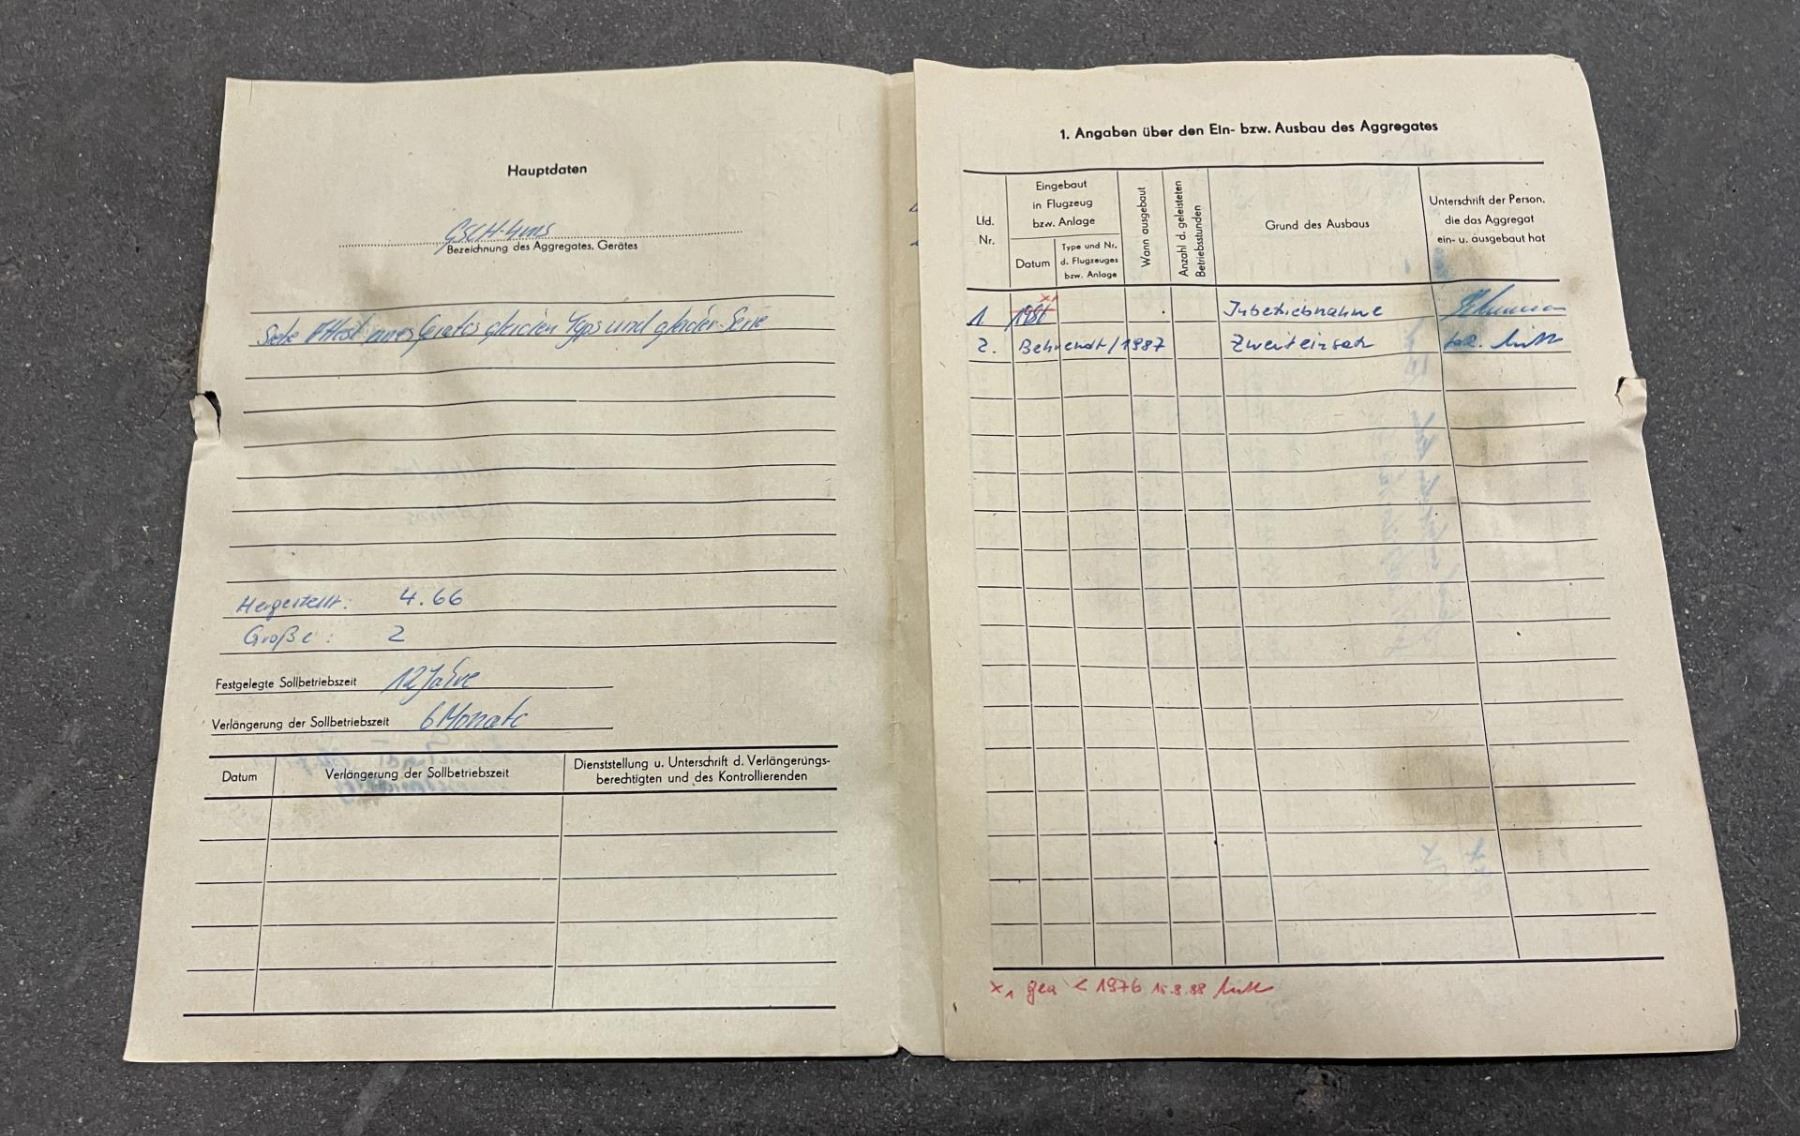 Hauptdaten
GSCH-4ms
Bezeichnung des Aggregates, Gerätes
Siehe Attest eines Gerätes gleichen Typs und gleicher Serie
Hergestellt: 4.66
Größe: 2
Festgelegte Sollbetriebszeit 12 Jahre
Verlängerung der Sollbetriebszeit 6 Monate
Datum
Verlängerung der Sollbetriebszeit
Dienststellung u. Unterschrift d. Verlängerungs-
berechtigten und des Kontrollierenden
1. Angaben über den Ein- bzw. Ausbau des Aggregates
Lfd.
Nr.
Eingebaut
in Flugzeug
bzw. Anlage
Datum
Type und Nr.
d. Flugzeuges
bzw. Anlage
Wann ausgebaut
Anzahl d. geleisteten
Betriebsstunden
Grund des Ausbaus
Unterschrift der Person,
die das Aggregat
ein- u. ausgebaut hat
1 Inbetriebnahme
2. Behrendt/1987 Zweiteinsatz
x1 gea < 1976 15.8.88